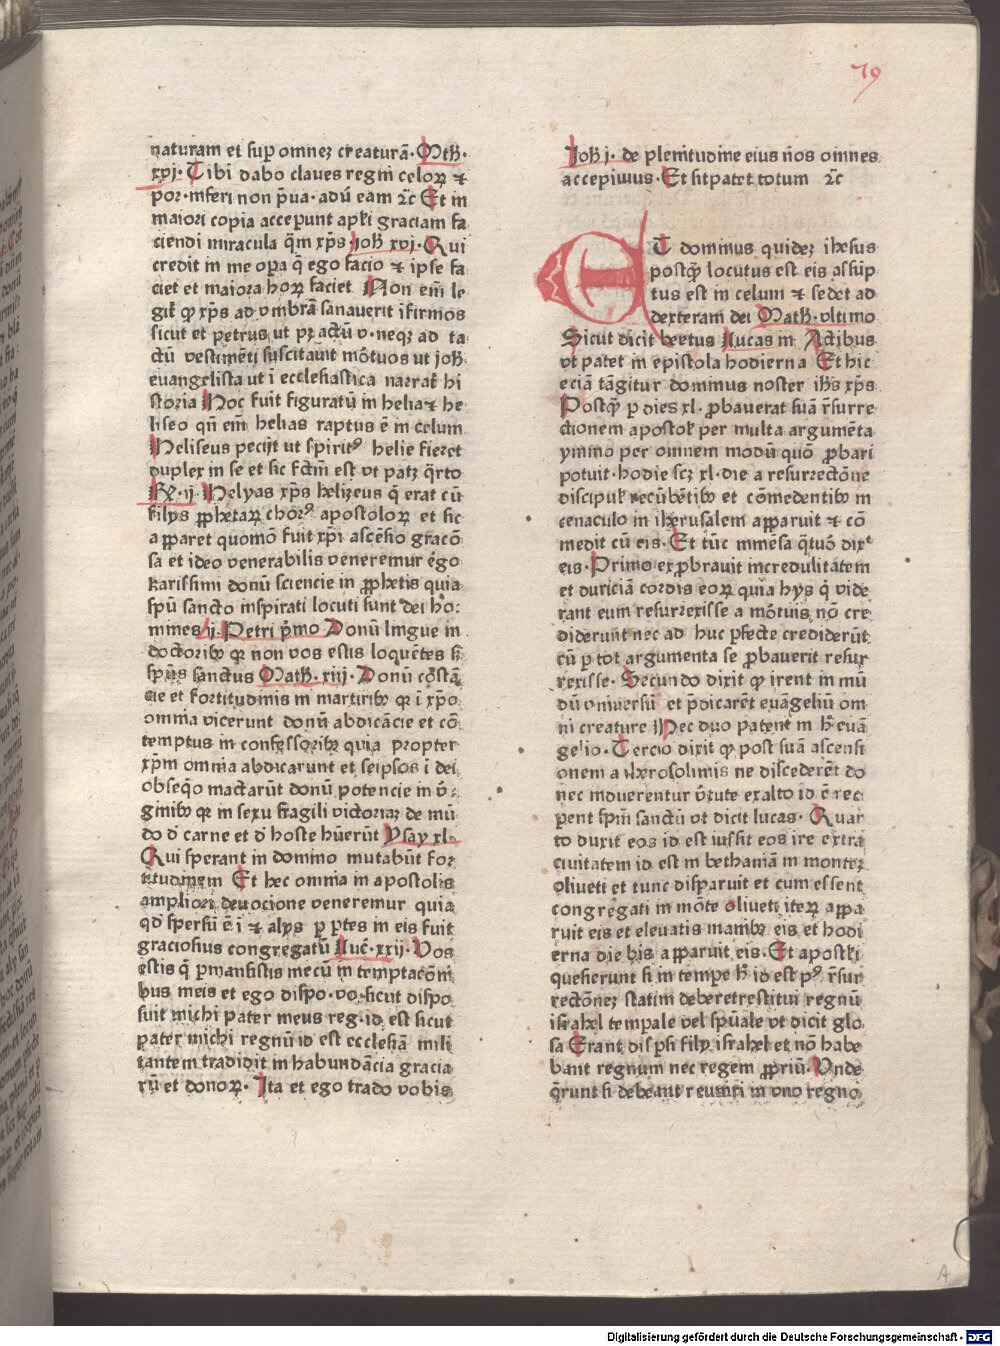 79
naturam et sup omneʒ creaturā· Mth̄·
xvj· Tibi dabo claues regni celoꝝ ⁊
por·inferi non p̄ua·adū eam ⁊c̄ Et in
maiori copia acceperunt apl̄i graciam fa
ciendi miracula q̄m xp̄s Joh̄ xvj· Qui
credit in me opa q̄ ego facio ⁊ ipse fa
ciet et maiora hoꝝ faciet Non em̄ le
git̄ ꝙ xp̄s ad vmbrā sanauerit ifirmos
sicut et petrus ut pʒ actū v·neqʒ ad ta
ctū vestimēti suscitauit mōtuos ut joh̄
euangelista ut ī ecclesiastica narrat̄ hi
storia Hoc fuit figuratū in helia ⁊ he
liseo qn̄ em̄ helias raptus ē in celum
Heliseus pecijt ut spirit⁹ helie fieret
duplex in se et sic fc̄m est vt patʒ q̄rto
Re·ij· Helyas xp̄s helizeus q̄ erat cū
filijs ꝓphetaꝝ chor⁹ apostoloꝝ et sic
apparet quomō fuit xp̄i ascēsio gracō
sa et ideo venerabilis veneremur ergo
karissimi donū sciencie in ꝓphetis quia
spū sancto inspirati locuti sunt dei ho:
mines ij· Petri p̄mo Donū lingue in
doctoribꝰ ꝙ non vos estis loquētes s̄
spūs sanctus Math̄· xiij· Donū cōstā
cie et fortitudinis in martiribꝰ ꝙ ī xp̄o
omnia vicerunt donū abdicācie et cō
temptus in confessoribꝰ quia propter
xp̄m omnia abdicarunt et seipsos ī dei
obseq̄o mactarūt donū potencie in v̄·
ginibꝰ ꝙ in sexu fragili victoriaʒ de mū
do d̄ carne et d̄ hoste hūerūt Ysay xl·
Qui sperant in domino mutabūt for
titudinem Et hec omnia in apostolis
ampliori deuocione veneremur quia
qd̄ spersū ē ī ⁊ alijs ꝑ ꝑtes in eis fuit
graciosius congregatū Luc̄·xxij· Vos
estis q̄ ꝑmansistis mecū in temptacōni
bus meis et ego dispo·vo·sicut dispo
suit michi pater meus reg·id est sicut
pater michi regnū id est ecclesiā mili
tantem tradidit in habundācia gracia
rū et donoꝝ· Ita et ego trado vobis
Joh̄ j· de plenitudine eius nos omnes
accepimus· Et sit patet totum ⁊c̄
ET dominus quideʒ ihesus
postqͣ locutus est eis assūp
tus est in celum ⁊ sedet ad
dexteram dei Math̄·vltimo
Sicut dicit beetus Lucas in Actibus
vt patet in epistola hodierna Et hic
eciā tāgitur dominus noster ih̄s xp̄s
Postqͣ ꝑ dies xl· ꝓbauerat suā r̄surre
ctionem apostol̄ per multa argumēta
ymmo per omnem modū quō ꝓbari
potuit·hodie scʒ xl·die a resurrectōne
discipul̄ recūbētibꝰ et cōmedentibꝰ in
cenaculo in iherusalem apparuit ⁊ cō
medit cū eis· Et tūc in mēsa q̄tuō dixᵗ
eis·Primo exꝓbrauit incredulitatem
et duriciā cordis eoꝝ quia hijs q̄ vide
rant eum resurrexisse a mōtuis nō cre
diderunt nec ad huc ꝑfecte crediderūt
cū ꝑ tot argumenta se ꝓbauerit resur
rexisse· Secundo dixit ꝙ irent in mū
dū vniuersū et p̄dicarēt euāgeliū om
ni creature Hec duo patent in h̄ euā
gelio·Tercio dixit ꝙ post suā ascensi
onem a iherosolimis ne discederēt do
nec induerentur v̄tute ex alto id ē reci
perent spm̄ sanctū vt dicit lucas· Quar
to duxit eos id est iussit eos ire extra
ciuitatem id est in bethaniā in monteʒ
oliueti et tunc disparuit et cum essent
congregati in mōte oliueti iteꝝ appa
ruit eis et eleuatis manibꝰ eis et hodi
erna die bis apparuit eis· Et apostl̄i
quesierunt si in tempe h̄ id est p⁹ r̄sur
rectōneʒ statim deberet restitui regnū
israhel tempale vel spūale vt dicit glo
sa Erant dispsi filij israhel et nō habe
bant regnum nec regem ꝓpriū· Vnde
q̄runt si debeant reuniri in vno regno
A
Digitalisierung gefördert durch die Deutsche Forschungsgemeinschaft - DFG